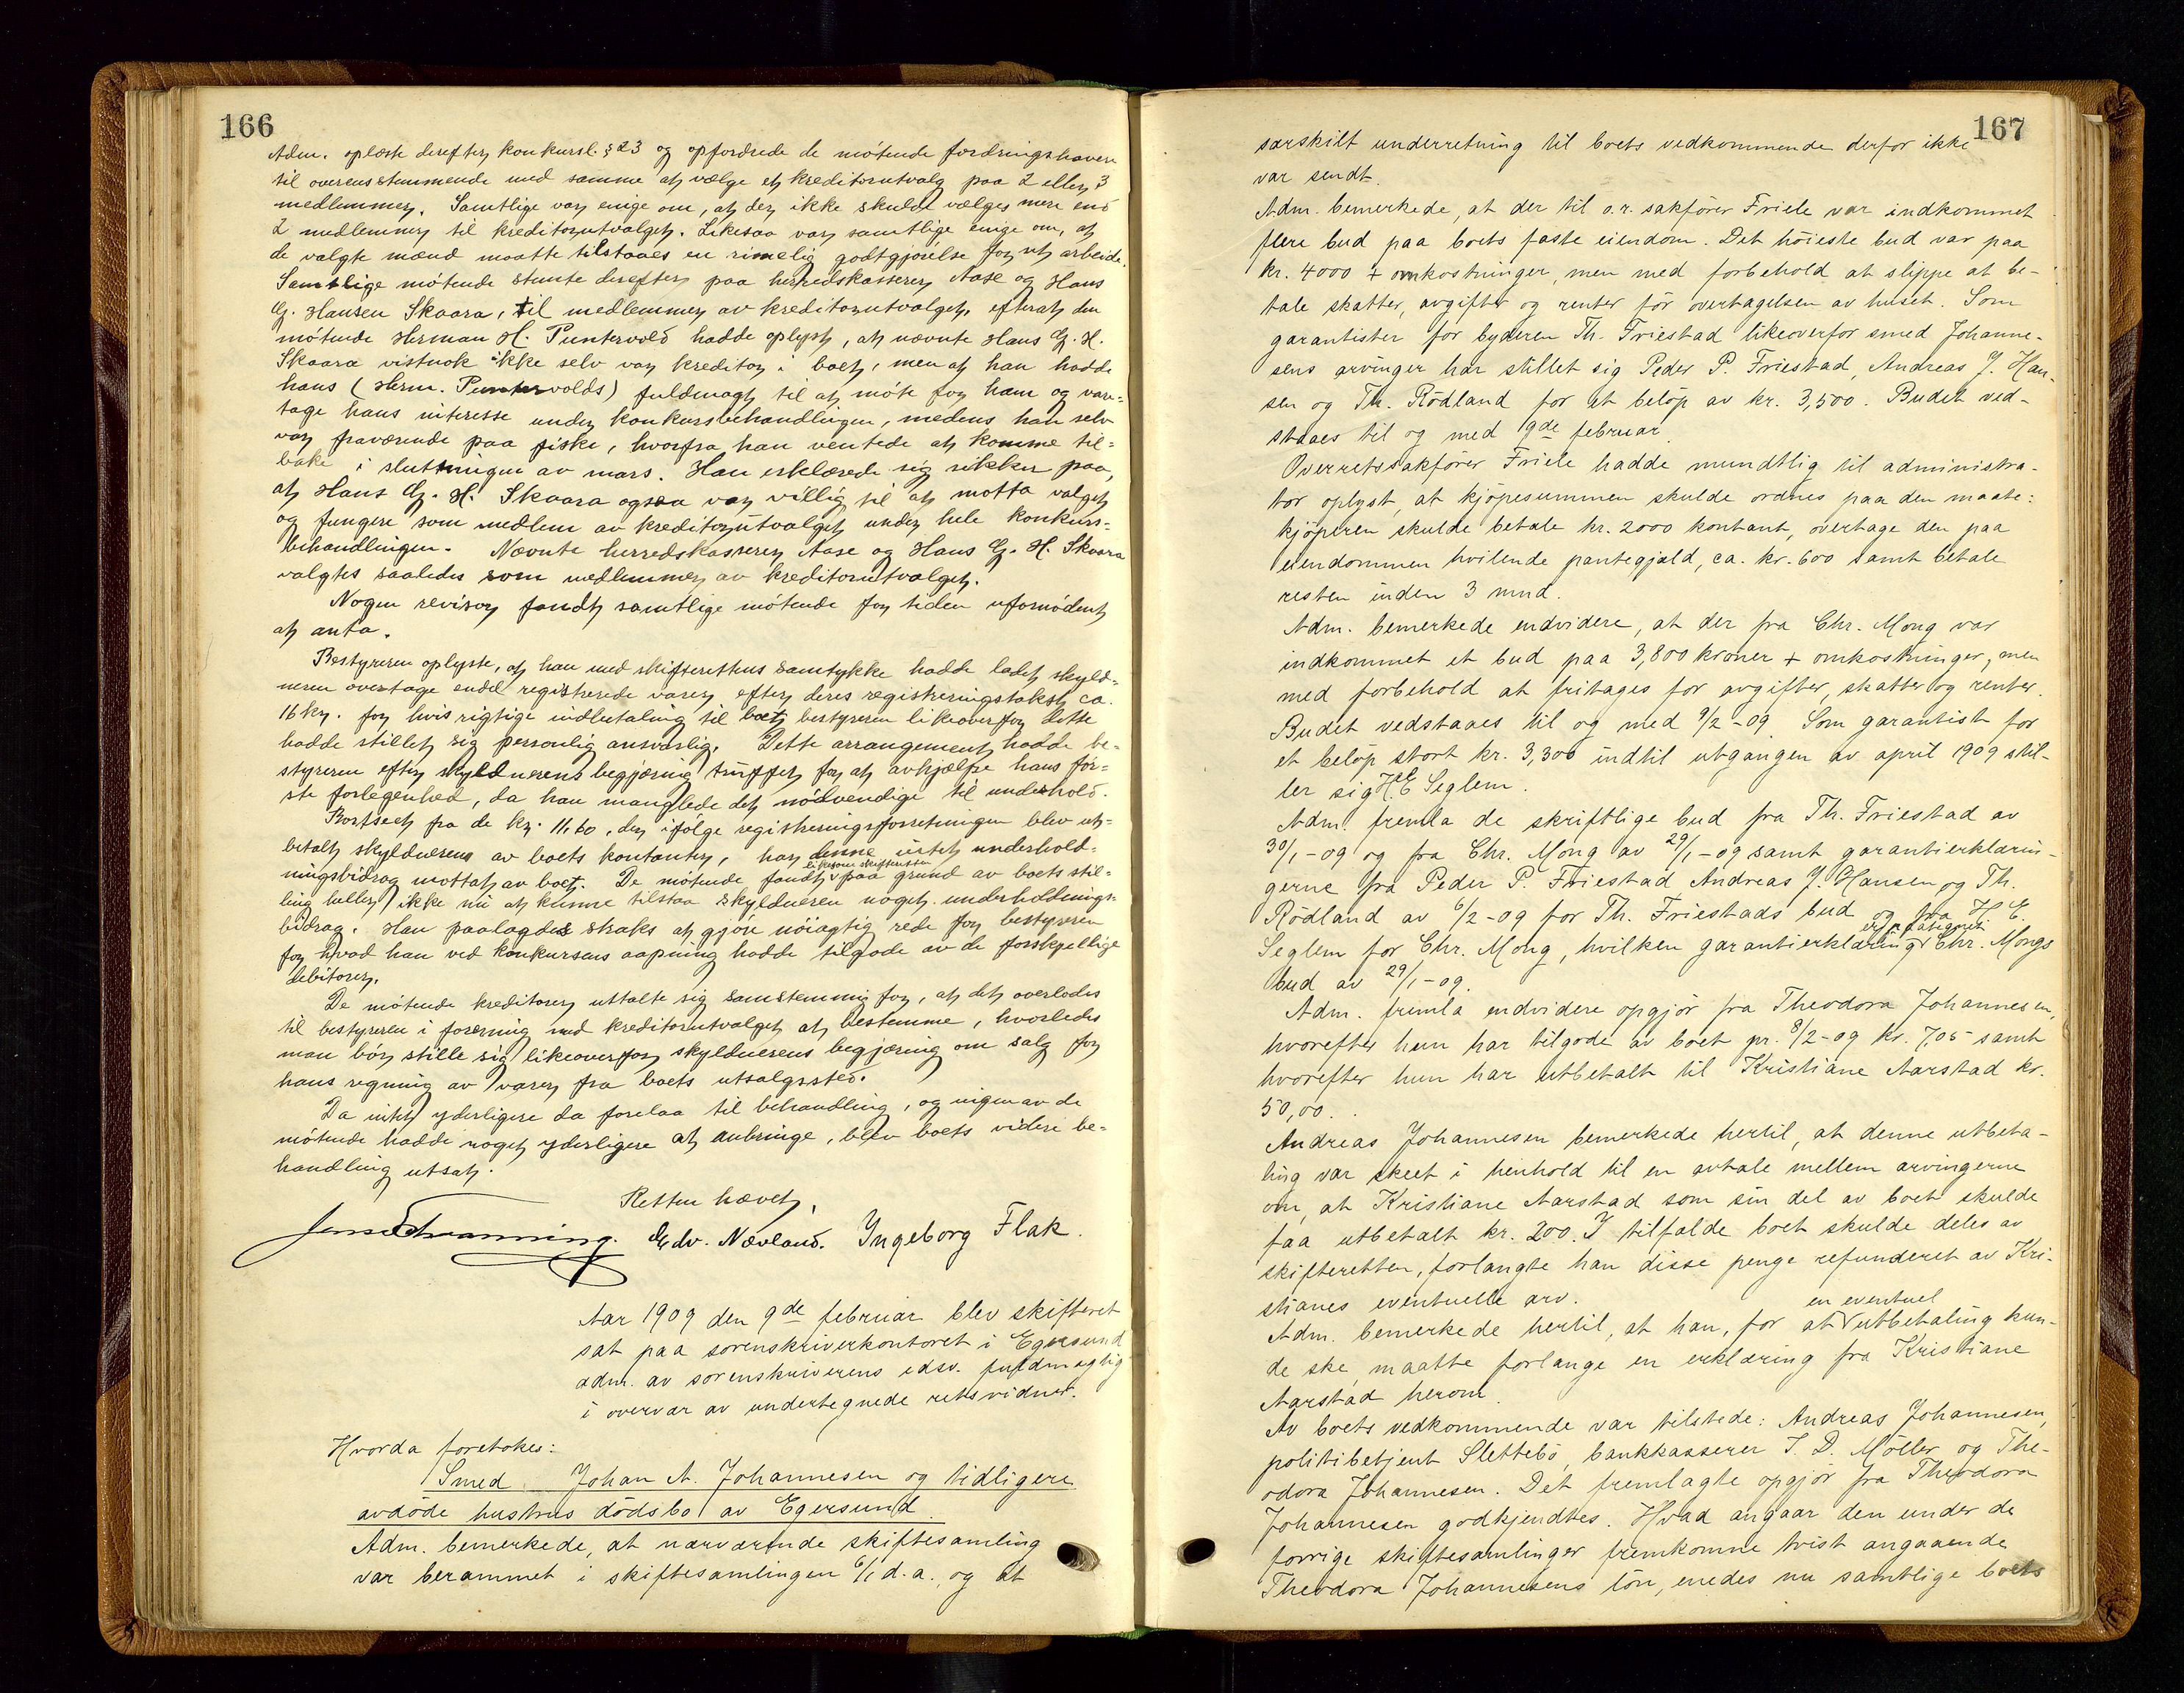 166
Adm. oplæste derefter konkursl. § 23 og opfordrede de møtende fordringshavere
til overensstemmende med samme at vælge et kreditorutvalg paa 2 eller 3
medlemmer. Samtlige var enige om, at der ikke skulde vælges mere end
2 medlemmer til kreditorutvalget. Likesaa var samtlige enige om, at
de valgte mænd maatte tilstaaes en rimelig godtgjørelse for sit arbeide.
Samtlige møtende stemte derefter paa herredskasserer Aase og Hans
G. Hansen Skaara, til medlemmer av kreditorutvalget, efterat den
møtende Herman H. Puntervold hadde oplyst, at nævnte Hans G. H.
Skaara vistnok ikke selv var kreditor i boet, men at han hadde
hans (Herm. Puntervolds) fuldmagt til at møte for ham og vare=
tage hans interesse under konkursbehandlingen, medens han selv
var fraværende paa fiske, hvorfra han ventede at komme til=
bake i slutningen av mars. Han erklærede sig sikker paa,
at Hans G. H. Skaara ogsaa var villig til at motta valget
og fungere som medlem av kreditorutvalget under hele konkurs=
behandlingen. Nævnte herredskasserer Aase og Hans G. H. Skaara
valgtes saaledes som medlemmer av kreditorutvalget.
Nogen revisor fandt samtlige møtende for tiden ufornødent
at anta.
Bestyreren oplyste, at han med skifterettens samtykke hadde ladet skyld=
neren overtage endel registrerede varer efter deres registreringstakst ca.
16 kr. for hvis rigtige indbetaling til boet bestyreren likeoverfor dette
hadde stillet sig personlig ansvarlig. Dette arrangement hadde be=
styreren efter skyldnerens begjæring truffet for at avhjælpe hans før=
ste forlegenhed, da han manglede det nødvendige til underhold.
Bortseet fra de kr. 11,60, der ifølge registreringsforretningen blev ut=
betalt skyldneren av boets kontanter, har denne intet underhold=
ningsbidrag mottat av boet. De møtende fandt likesom skifteretten paa grund av boets stil=
ling heller ikke nu at kunne tilstaa skyldneren noget underholdnings=
bidrag. Han paalagdes straks at gjøre nøiagtig rede for bestyreren
for hvad han ved konkursens aapning hadde tilgode av de forskjellige
debitorer.
De møtende kreditorer uttalte sig samstemmig for, at det overlodes
til bestyreren i forening med kreditorutvalget at bestemme, hvorledes
man bør stille sig likeoverfor skyldnerens begjæring om salg for
hans regning av varer fra boets utsalgssted.
Da intet yderligere da forelaa til behandling, og ingen av de
møtende hadde noget yderligere at anbringe, blev boets videre be=
handling utsat.
Retten hævet,
Jens Schanning. Edv. Nævland. Ingeborg Flak.
Aar 1909 den 9de februar blev skifteret
sat paa sorenskriverkontoret i Egersund
adm. av sorenskriverens edsv. fuldmægtig
i overvær av undertegnede retsvidner.
Hvorda foretokes:
Smed Johan A. Johannesen og tidligere
avdøde hustrus dødsbo av Egersund.
Adm. bemerkede, at nærværende skiftesamling
var berammet i skiftesamlingen 6/1 d.a. og at
167
særskilt underretning til boets vedkommende derfor ikke
var sendt.
Adm. bemerkede, at der til o.r. sakfører Friele var indkommet
flere bud paa boets faste eiendom. Det høieste bud var paa
kr. 4000 + omkostninger, men med forbehold at slippe at be-
tale skatter, avgifter og renter før overtagelsen av huset. Som
garantister for byderen Th. Friestad likeoverfor smed Johanne-
sens arvinger har stillet sig Peder P. Friestad, Andreas J. Han-
sen og Th. Rödland for et beløp av kr. 3,500. Budet ved-
staaes til og med 9de februar.
Overretssakfører Friele hadde mundtlig til administra-
tor oplyst, at kjøpesummen skulde ordnes paa den maate:
kjøperen skulde betale kr. 2000 kontant, overtage den paa
eiendommen hvilende pantegjæld, ca. kr. 600 samt betale
resten inden 3 mnd.
Adm. bemerkede endvidere, at der fra Chr. Mong var
indkommet et bud paa 3,800 kroner + omkostninger, men
med forbehold at fritages for avgifter, skatter og renter.
Budet vedstaaes til og med 9/2-09. Som garantist for
et beløp stort kr. 3,300 indtil utgangen av april 1909 stil-
ler sig H. E. Seglem.
Adm. fremla de skriftlige bud fra Th. Friestad av
30/1-09 og fra Chr. Mong av 29/1-09 samt garantierklærin-
gerne fra Peder P. Friestad Andreas J. Hansen og Th.
Rödland av 6/2-09 for Th. Friestads bud og fra H. E.
Seglem for Chr. Mong, hvilken garantierklæring er paategnet Chr. Mongs
bud av 29/1-09.
Adm. fremla endvidere opgjør fra Theodora Johannesen,
hvorefter hun har tilgode av boet pr. 8/2-09 kr. 7,05 samt
hvorefter hun har utbetalt til Kristiane Aarstad kr.
50,00.
Andreas Johannesen bemerkede hertil, at denne utbeta-
ling var skeet i henhold til en avtale mellem arvingerne
om, at Kristiane Aarstad som sin del av boet skulde
faa utbetalt kr. 200. I tilfælde boet skulde deles av
skifteretten, forlangte han disse penge refunderet av Kri-
stianes eventuelle arv.
Adm. bemerkede hertil, at han, for at en eventuel utbetaling kun-
de ske, maatte forlange en erklæring fra Kristiane
Aarstad herom.
Av boets vedkommende var tilstede: Andreas Johannesen,
politibetjent Slettebö, bankkasserer J. D. Möller og The-
odora Johannesen. Det fremlagte opgjør fra Theodora
Johannesen godkjendtes. Hvad angaar den under de
forrige skiftesamlinger fremkomne tvist angaaende
Theodora Johannesens løn, enedes nu samtlige boets